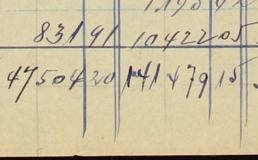 83191 1042205
4750420 1414791 5.